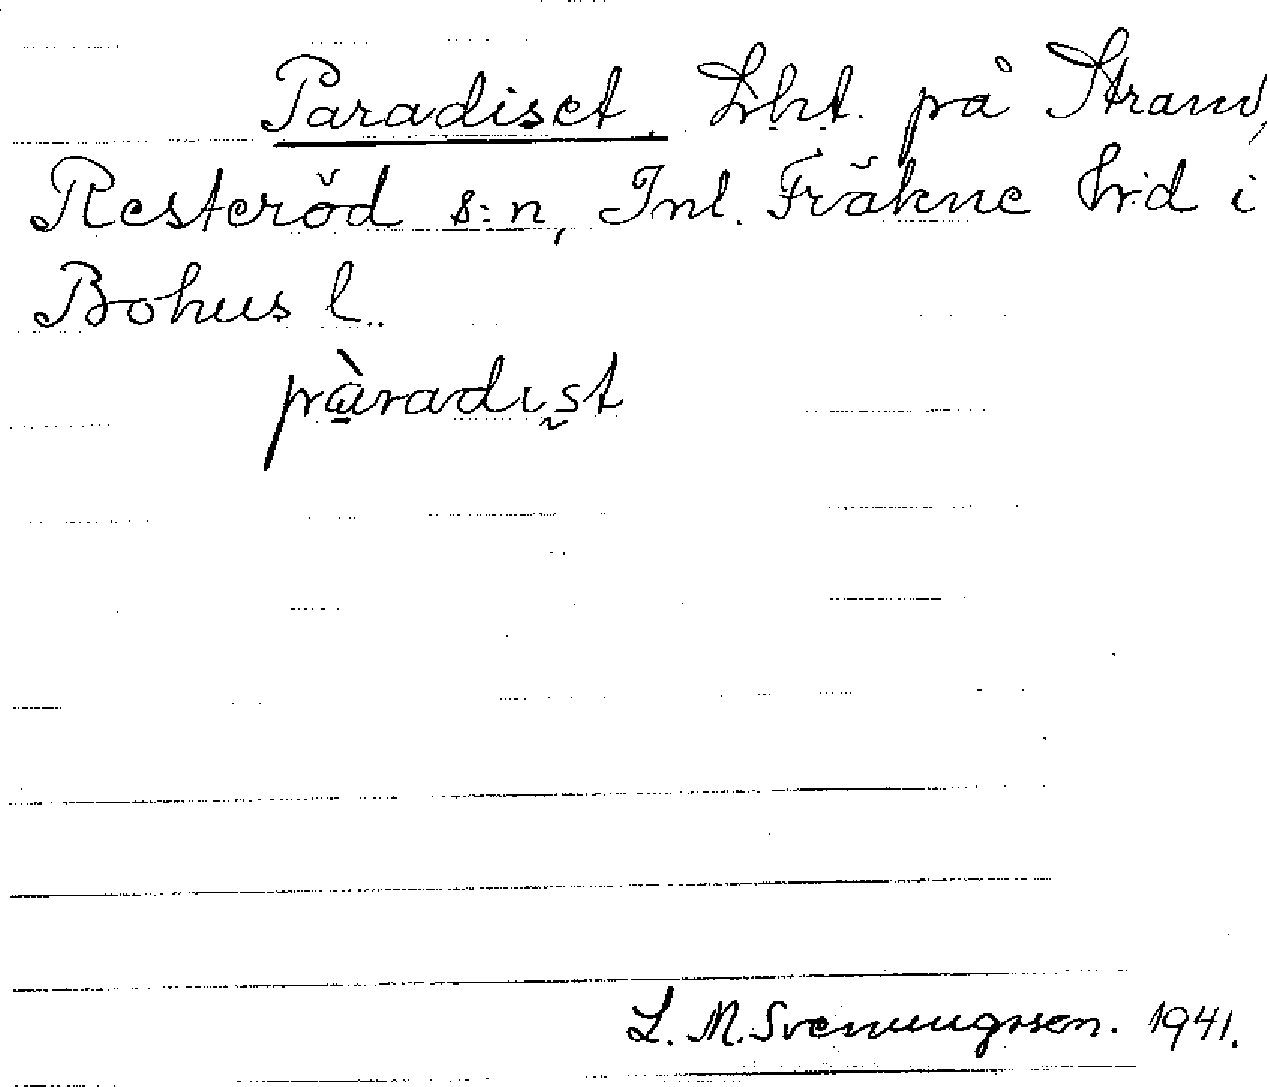 Paradiset. Lht. på Strand,
Resteröd s:n, Inl. Fräkne hrd i
Bohus l.
pàradist
L. M. Svenungsson. 1941.